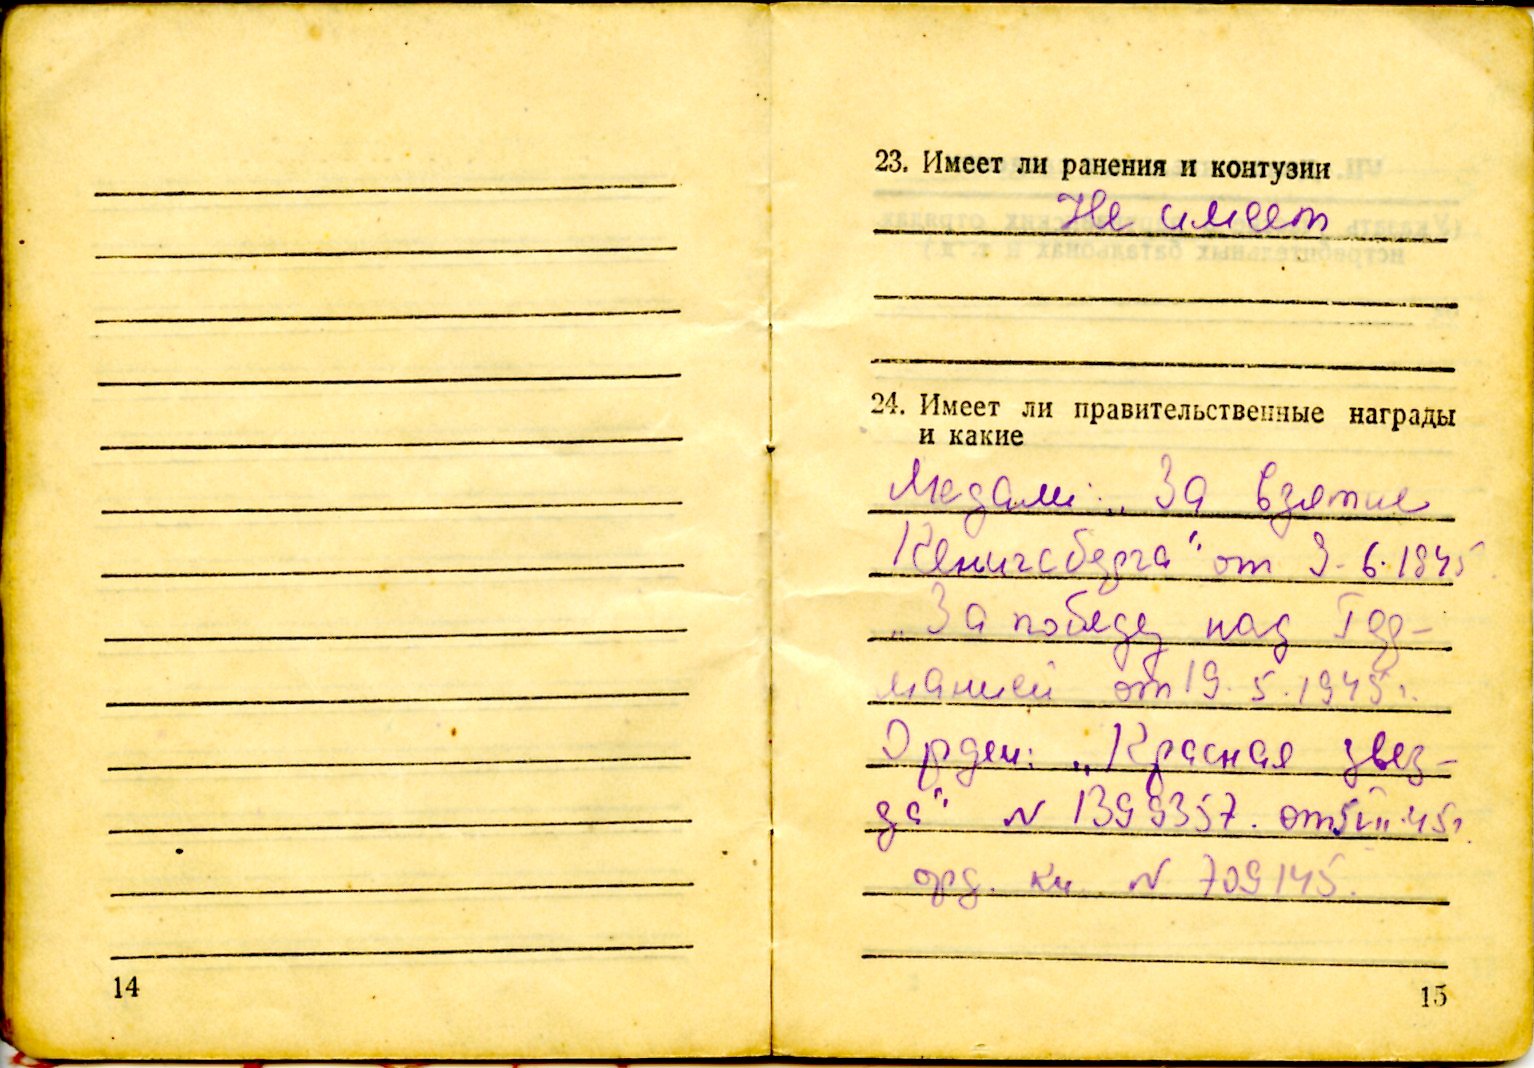 14
23. Имеет ли ранения и контузии
Не имеет
24. Имеет ли правительственные награды
и какие
Медали: „За взятие
Кенигсберга" от 9.6.1945
„За победу над Гер-
манией от 19.5.1945г.
Орден: „Красная звез-
да" N 1399357. от
орд. кн. N 709145.
15